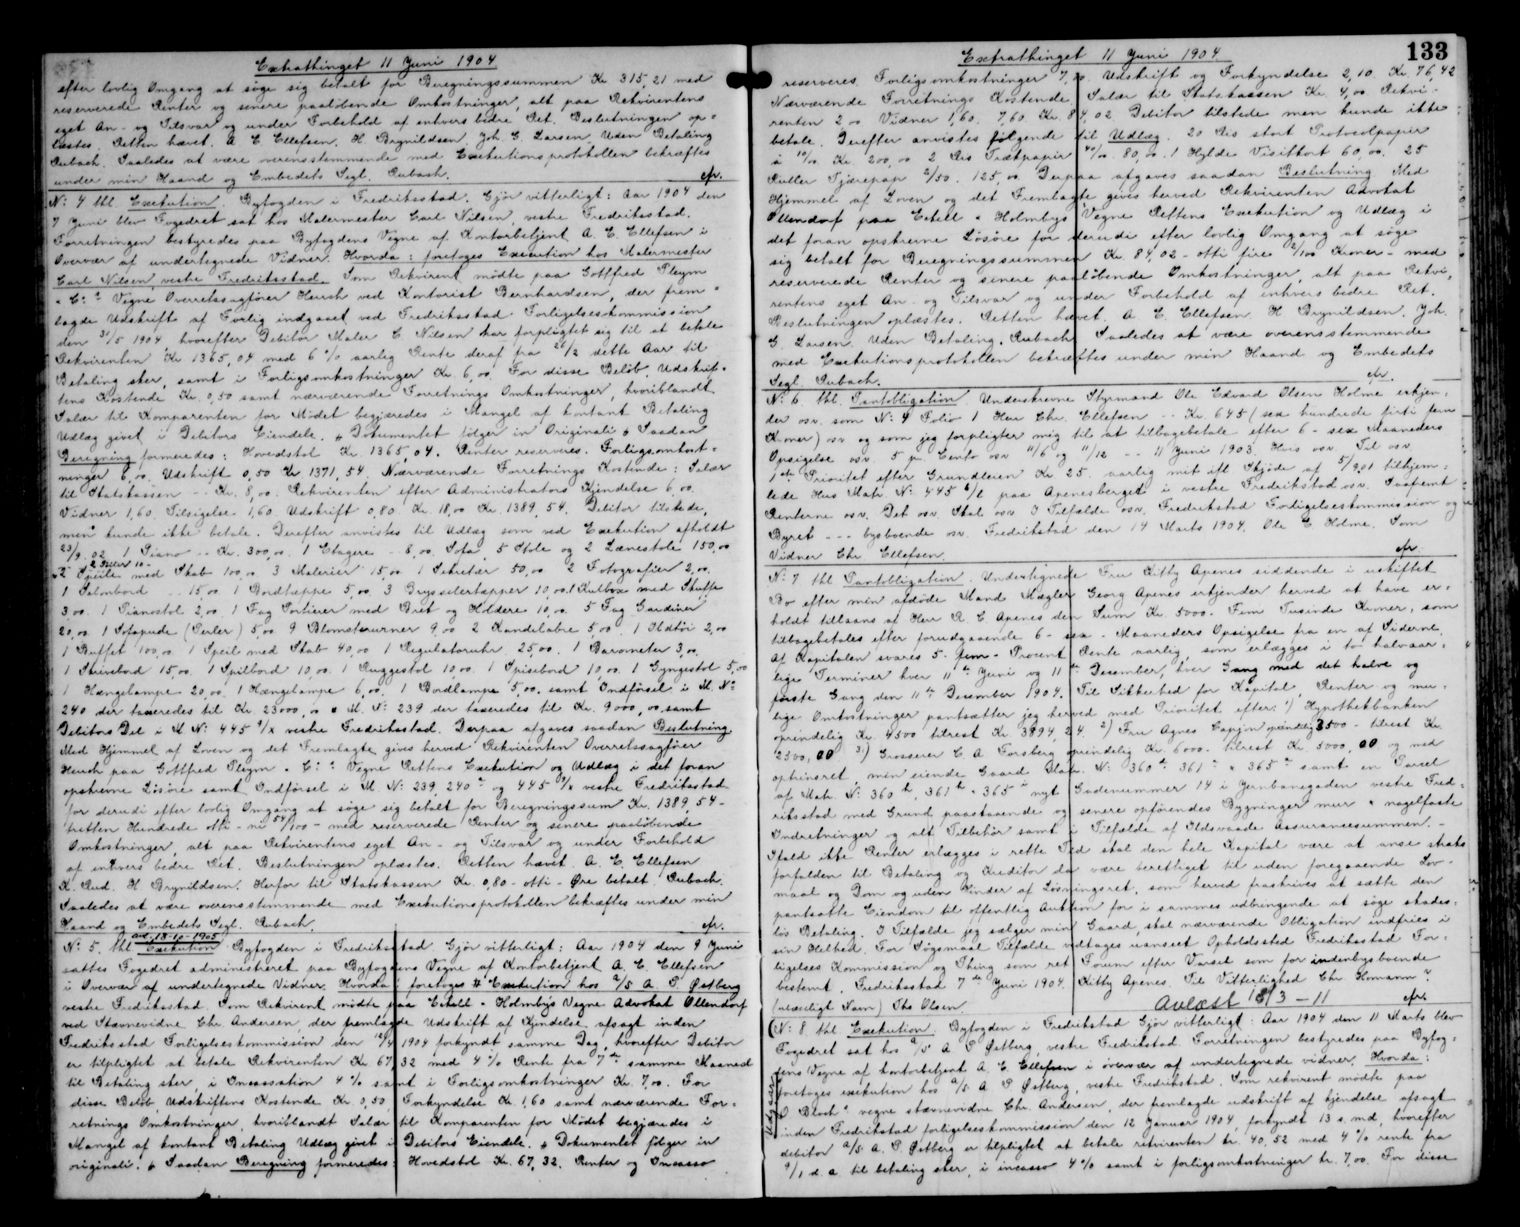 Extrathinget 11 Juni 1904
efter lovlig Omgang at søge sig betalt for Beregningssummen Kr 315,21 med
reserverede Renter og senere paaløbende Omkostninger, alt paa Rekvirentens
eget An- og Tilsvar og under Forbehold af enhvers bedre Ret. Beslutningen op-
læstes. Retten hævet. A E Ellefsen. H. Brynildsen. Joh. G. Larsen. Uden Betaling
Rubach. Saaledes at være overensstemmende med Exekutionsprotokollen bekræftes
under min Haand og Embedets Segl. Rubach. cfr.
No 4 tbl. Exekution. Byfogden i Fredriksstad. Gjør vitterligt: Aar 1904 den
7 Juni blev Fogedret sat hos Malermester Carl Nilsen, vestre Fredriksstad.
Forretningen bestyredes paa Byfogdens Vegne af Kontorbetjent A. E. Ellefsen i
Overvær af undertegnede Vidner. Hvorda: foretoges Exekution hos Malermester
Carl Nilsen vestre Fredriksstad. Som Rekvirent mødte paa Gottfred Pleym
& Co's Vegne Overretssagfører Hersch ved Kontorist Bernhardsen, der frem-
lagde Udskrift af Forlig indgaaet ved Fredriksstad Forligelseskommission
den 31/5 1904 hvorefter Debitor Maler C Nilsen har forpligtet sig til at betale
Rekvirenten Kr 1365,04 med 6 % aarlig Rente deraf fra 26/2 dette Aar til
Betaling sker, samt i Forligsomkostninger Kr. 6,00. For disse Beløb, Udskrif-
tens Kostende Kr. 0,50 samt nærværende Forretnings Omkostninger, hvoriblandt
Salær til Komparenten for Mødet begjæredes i Mangel af kontant Betaling
Udlæg givet i Debitors Eiendele. Dokumentet følger in Originali. Saadan
Beregning formeredes: Hovedstol Kr. 1365,04. Renter reserveres. Forligsomkost-
ninger 6,00. Udskrift 0,50 Kr 1371,54. Nærværende Forretnings Kostende: Salær
til Statskassen -- Kr. 8,00. Rekvirenten efter Administrators Kjendelse 6,00.
Vidner 1,60 Tilsigelse 1,60 Udskrift 0,80 Kr 18,00 Kr. 1389,54. Debitor tilstede,
men kunde ikke betale. Derefter anvistes til Udlæg som ved Exekution afholdt
23/9 02 1 Piano -- Kr. 300,00. 1 Etagere -- 8,00. Sofa, 5 Stole og 2 Lænestole 150,00
2 Speile med Skab 100,00 3 Malerier 15,00 1 Sekretær 50,00 2 Fotografier 2,00.
1 Salonbord -- 15,00. 1 Bordtæppe 5,00. 3 Brysselertæpper 10,00. 1 Kulbox med Skuffe
3,00. 1 Pianostol 2,00. 1 Fag Portierer med Bret og Holdere 10,00. 5 Fag Gardiner
20,00 1 Sofapude (Perler) 5,00 9 Blomsterurner 9,00 2 Kandelabre 5,00. 1 Ildtøi 2,00
1 Buffet 100,00 1 Speil med Skab 40,00 1 Regulatoruhr 25,00. 1 Barometer 3,00.
1 Skrivebord 15,00 1 Spilbord 10,00. 1 Ruggestol 10,00. 1 Spisebord 10,00. 1 Gyngestol 5,00
1 Hængelampe 20,00. 1 Hængelampe 6,00. 1 Bordlampe 5,00. samt Indførsel i M. No
240 der taxeredes til Kr. 23000,00 & M. No 239 der taxeredes til Kr. 9000,00 samt
Debitors Del i M No 445 vestre Fredriksstad. Derpaa afgaves saadan Beslutning
Med Hjemmel af Loven og det Fremlagte gives herved Rekvirenten Overretssagfører
Hersch paa Gottfred Pleym & Co's Vegne Rettens Exekution og Udlæg i det foran
opskrevne Løsøre samt Indførsel i M. No 239, 240 og 445 vestre Fredriksstad
for derudi efter lovlig Omgang at søge sig betalt for Beregningssum Kr. 1389,54 -
tretten Hundrede otti - ni 54/100 - med reserverede Renter og senere paaløbende
Omkostninger, alt paa Rekvirentens eget An- og Tilsvar og under Forbehold
af enhvers bedre Ret. Beslutningen oplæstes. Retten hævet. A. E. Ellefsen
K. Rud. H Brynildsen. Herfor til Statskassen Kr. 0,80 - otti - Øre betalt. Rubach.
Saaledes at være overensstemmende med Exekutionsprotokollen bekræftes under min
Haand og Embedets Segl. Rubach. cfr.
avl. 13-10-1905
No 5. tbl Exekution. Byfogden i Fredriksstad. Gjør vitterligt: Aar 1904 den 9 Juni
sattes Fogedret administreret paa Byfogdens Vegne af Kontorbetjent A. E. Ellefsen
i Overvær af undertegnede Vidner. Hvorda: foretoges Exekution hos A/S A. P. Østberg
vestre Fredriksstad. Som Rekvirent mødte paa Eckell & Holmbys Vegne Advokat Ollendorf
ved Stævnevidne Chr. Andersen, der fremlagde Udskrift af Kjendelse afsagt inden
Fredriksstad Forligelseskommission den 12/4 1904 forkyndt samme Dag, hvorefter Debitor
er tilpligtet at betale Rekvirenten Kr 67,32 med 4 % Rente fra 7de samme Maaned
til Betaling sker, i Incassation 4 % samt i Forligsomkostninger Kr. 7,00. For
disse Beløb, Udskriftens Kostende Kr. 0,50, Forkyndelse Kr. 1,60 samt nærværende For-
retnings Omkostninger, hvoriblandt Salær til Komparenten for Mødet begjæredes i
Mangel af kontant Betaling Udlæg givet i Debitors Eiendele. Dokumentet følger in
originali. Saadan Beregning formeredes: Hovedstol Kr. 67,32. Renter og Incasso
Extrathinget 11 Juni 1904
133
reserveres. Forligsomkostninger 7,00. Udskrift og Forkyndelse 2,10. Kr. 76,42
Nærværende Forretnings Kostende. Salær til Statskassen Kr. 4,00 Rekvi-
renten 2,00 Vidner 1,60. 7,60. Kr. 84,02 Debitor tilstede men kunde ikke
betale. Derefter anvistes følgende til Udlæg. 20 Ris stort Protocolpapir
a 10/00 Kr 200,00 2 Ris Trætpapir 40/00. 80,00. 1 Hylde Visitkort 60,00. 25
Ruller Tjærepap 5/50. 125,00. Derpaa afgaves saadan Beslutning Med
Hjemmel af Loven og det Fremlagte gives herved Rekvirenten Advokat
Ollendorf paa Eckell & Holmbys Vegne Rettens Exekution og Udlæg i
det foran opskrevne Løsøre for derudi efter lovlig Omgang at søge
sig betalt for Beregningssummen Kr. 84,02 - otti fire 2/100 Kroner - med
reserverede Renter og senere paaløbende Omkostninger, alt paa Rekvi-
rentens eget An- og Tilsvar og under Forbehold af enhvers bedre Ret.
Beslutningen oplæstes. Retten hævet. A. E. Ellefsen. H. Brynildsen. Joh.
G. Larsen. Uden Betaling. Rubach. Saaledes at være overensstemmende
med Exekutionsprotokollen bekræftes under min Haand og Embedets
Segl. Rubach. cfr.
No 6 tbl. Pantobligation. Underskrevne Styrmand Ole Edvard Olsen Holme erkjen-
der osv. som No 4 Folio 1 Herr Chr. Ellefsen -- Kr. 645 (sex hundrede firti fem
Kroner) osv og som jeg forpligter mig til at tilbagebetale efter 6 - sex Maaneders
Opsigelse osv. 5 pr Cento osv 11/6 og 11/12 -- 11 Juni 1903. Hvis osv. Til osv.
1ste Prioritet efter Grundleien Kr 25 aarlig mit ifl Skjøde af 5/9 01 tilhjem-
lede Hus Matr. No 445 paa Apenesberget i vestre Fredrikstad osv. Saafremt
Renterne osv. Det osv. Skal osv. I Tilfælde osv. Fredriksstad Forligelseskommission og
Byret --- bysboende osv. Fredriksstad den 14 Marts 1904. Ole E Holme. Som
Vidner Chr Ellefsen. cfr.
No 7 tbl Pantobligation. Undertegnede Fru Kitty Apenes siddende i uskiftet
Bo efter min afdøde Mand Mægler Georg Apenes erkjender herved at have er-
holdt tillaans af Herr R E Apenes den Sum Kr. 5000 - Fem Tusinde Kroner, som
tilbagebetales efter forudgaaende 6 - sex - Maaneders Opsigelse fra en af Siderne.
Af Kapitalen svares 5 - fem - Procent Rente aarlig, som erlægges i to halvaar-
lige Terminer hver 11te Juni og 11te Desember, hver Gang med det halve og
første Gang den 11te Desember 1904. Til Sikkerhed for Kapital, Renter og mu-
lige Omkostninger pantsætter jeg herved med Prioritet efter: 1) Hypothekbanken
oprindelig Kr. 4500 tilrest Kr 3894,24. 2) Fru Agnes Capjon oprindelig 3500 - tilrest Kr
2500,00 3) Grosserer C A Forsberg oprindelig Kr. 6000. tilrest Kr. 5000,00 og med
ophinsret, min eiende Gaard Matr. No 360 361 & 365 samt en Parcel
af Matr. No 360, 361 & 365 nyt Gadenummer 14 i Jernbanegaden vestre Fred-
riksstad med Grund paastaaende og senere opførendes Bygninger mur & nagelfaste
Indretninger og alt Tilbehør samt i Tilfælde af Ildsvaade Assurancesummen. -
Ifald ikke Renter erlægges i rette Tid skal den hele Kapital være at anse straks
forfalden til Betaling og Kreditor da være berettiget til uden foregaaende Lov-
maal og Dom og uden Hinder af Løsningsret, som herved fraskrives at sætte den
pantsatte Eiendom til offentlig Auktion for i sammes udbringende at søge skades-
løs Betaling. I Tilfælde jeg sælger min Gaard skal nærværende Obligation indfries i
sin Helhed. For Søgsmaal Tilfælde vedtages uanseet Opholdssted Fredriksstad For-
ligelses Kommission og Thing som ret Forum efter Varsel som for indenbysboende
bestemt. Fredriksstad 7de Juni 1904 Kitty Apenes. Til Vitterlighed Chr Homann
(ulæseligt Navn) Ths Olsen. Avlæst 18/3 - 11 cfr.
No 8 tbl. Exekution. Byfogden i Fredrikstad Gjør vitterligt: Aar 1904 den 11 Marts blev
Fogedret sat hos A/S A P Østberg, vestre Fredrikstad. Forretningen bestyredes paa Byfog-
dens Vegne af kontorbetjent A. E. Ellefsen i overvær af undertegnede vidner. Hvorda:
foretoges exekution hos A/S A P Østberg, vestre Fredrikstad. Som rekvirent mødte paa
O Bloch's vegne stævnevidne Chr. Andersen, der fremlagde udskrift af kjendelse afsagt
inden Fredrikstad forligelseskommission den 12 Januar 1904, forkyndt 13 s. md, hvorefter
debitor A/S A. P Østberg er tilpligtet at betale rekvirenten kr. 40,52 med 4 % rente fra
9/1 d. a. til betaling sker, i incasso 4 % samt i forligsomkostninger kr. 7,00. For disse